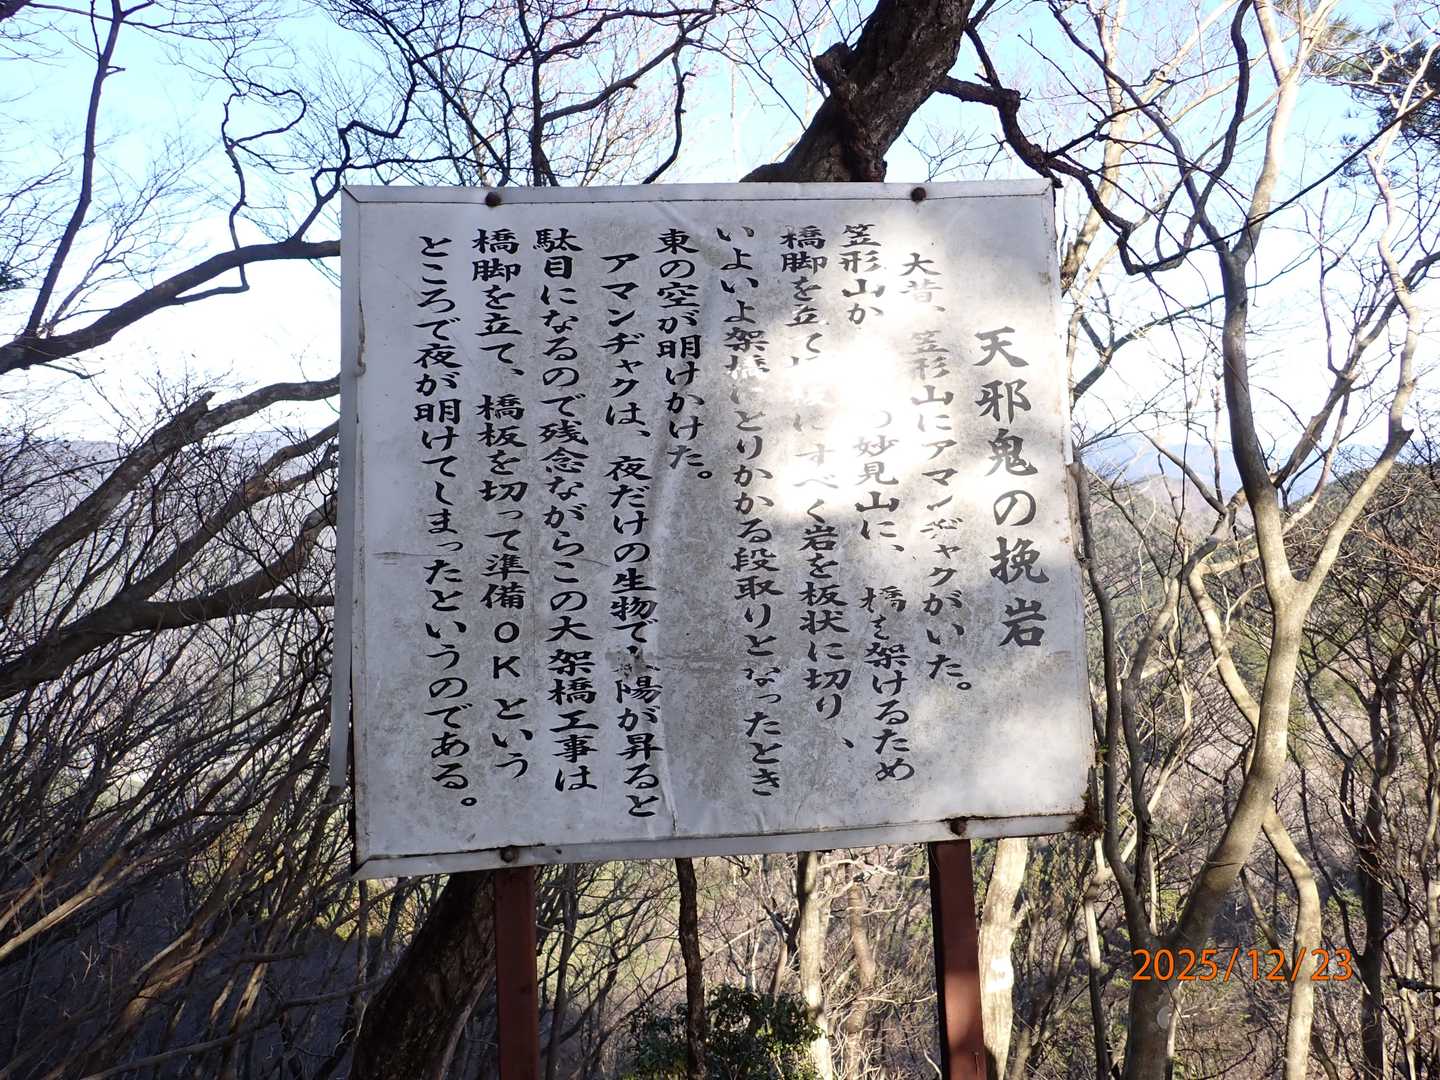 天邪鬼の挽岩
大昔、笠形山にアマンヂャクがいた。
笠形山か の妙見山に、橋を架けるため
橋脚を立て にすべく岩を板状に切り、
いよいよ架橋にとりかかる段取りとなったとき
東の空が明けかけた。
アマンヂャクは、夜だけの生物で 陽が昇ると
駄目になるので残念ながらこの大架橋工事は
橋脚を立て、橋板を切って準備OKという
ところで夜が明けてしまったというのである。
2025/12/23